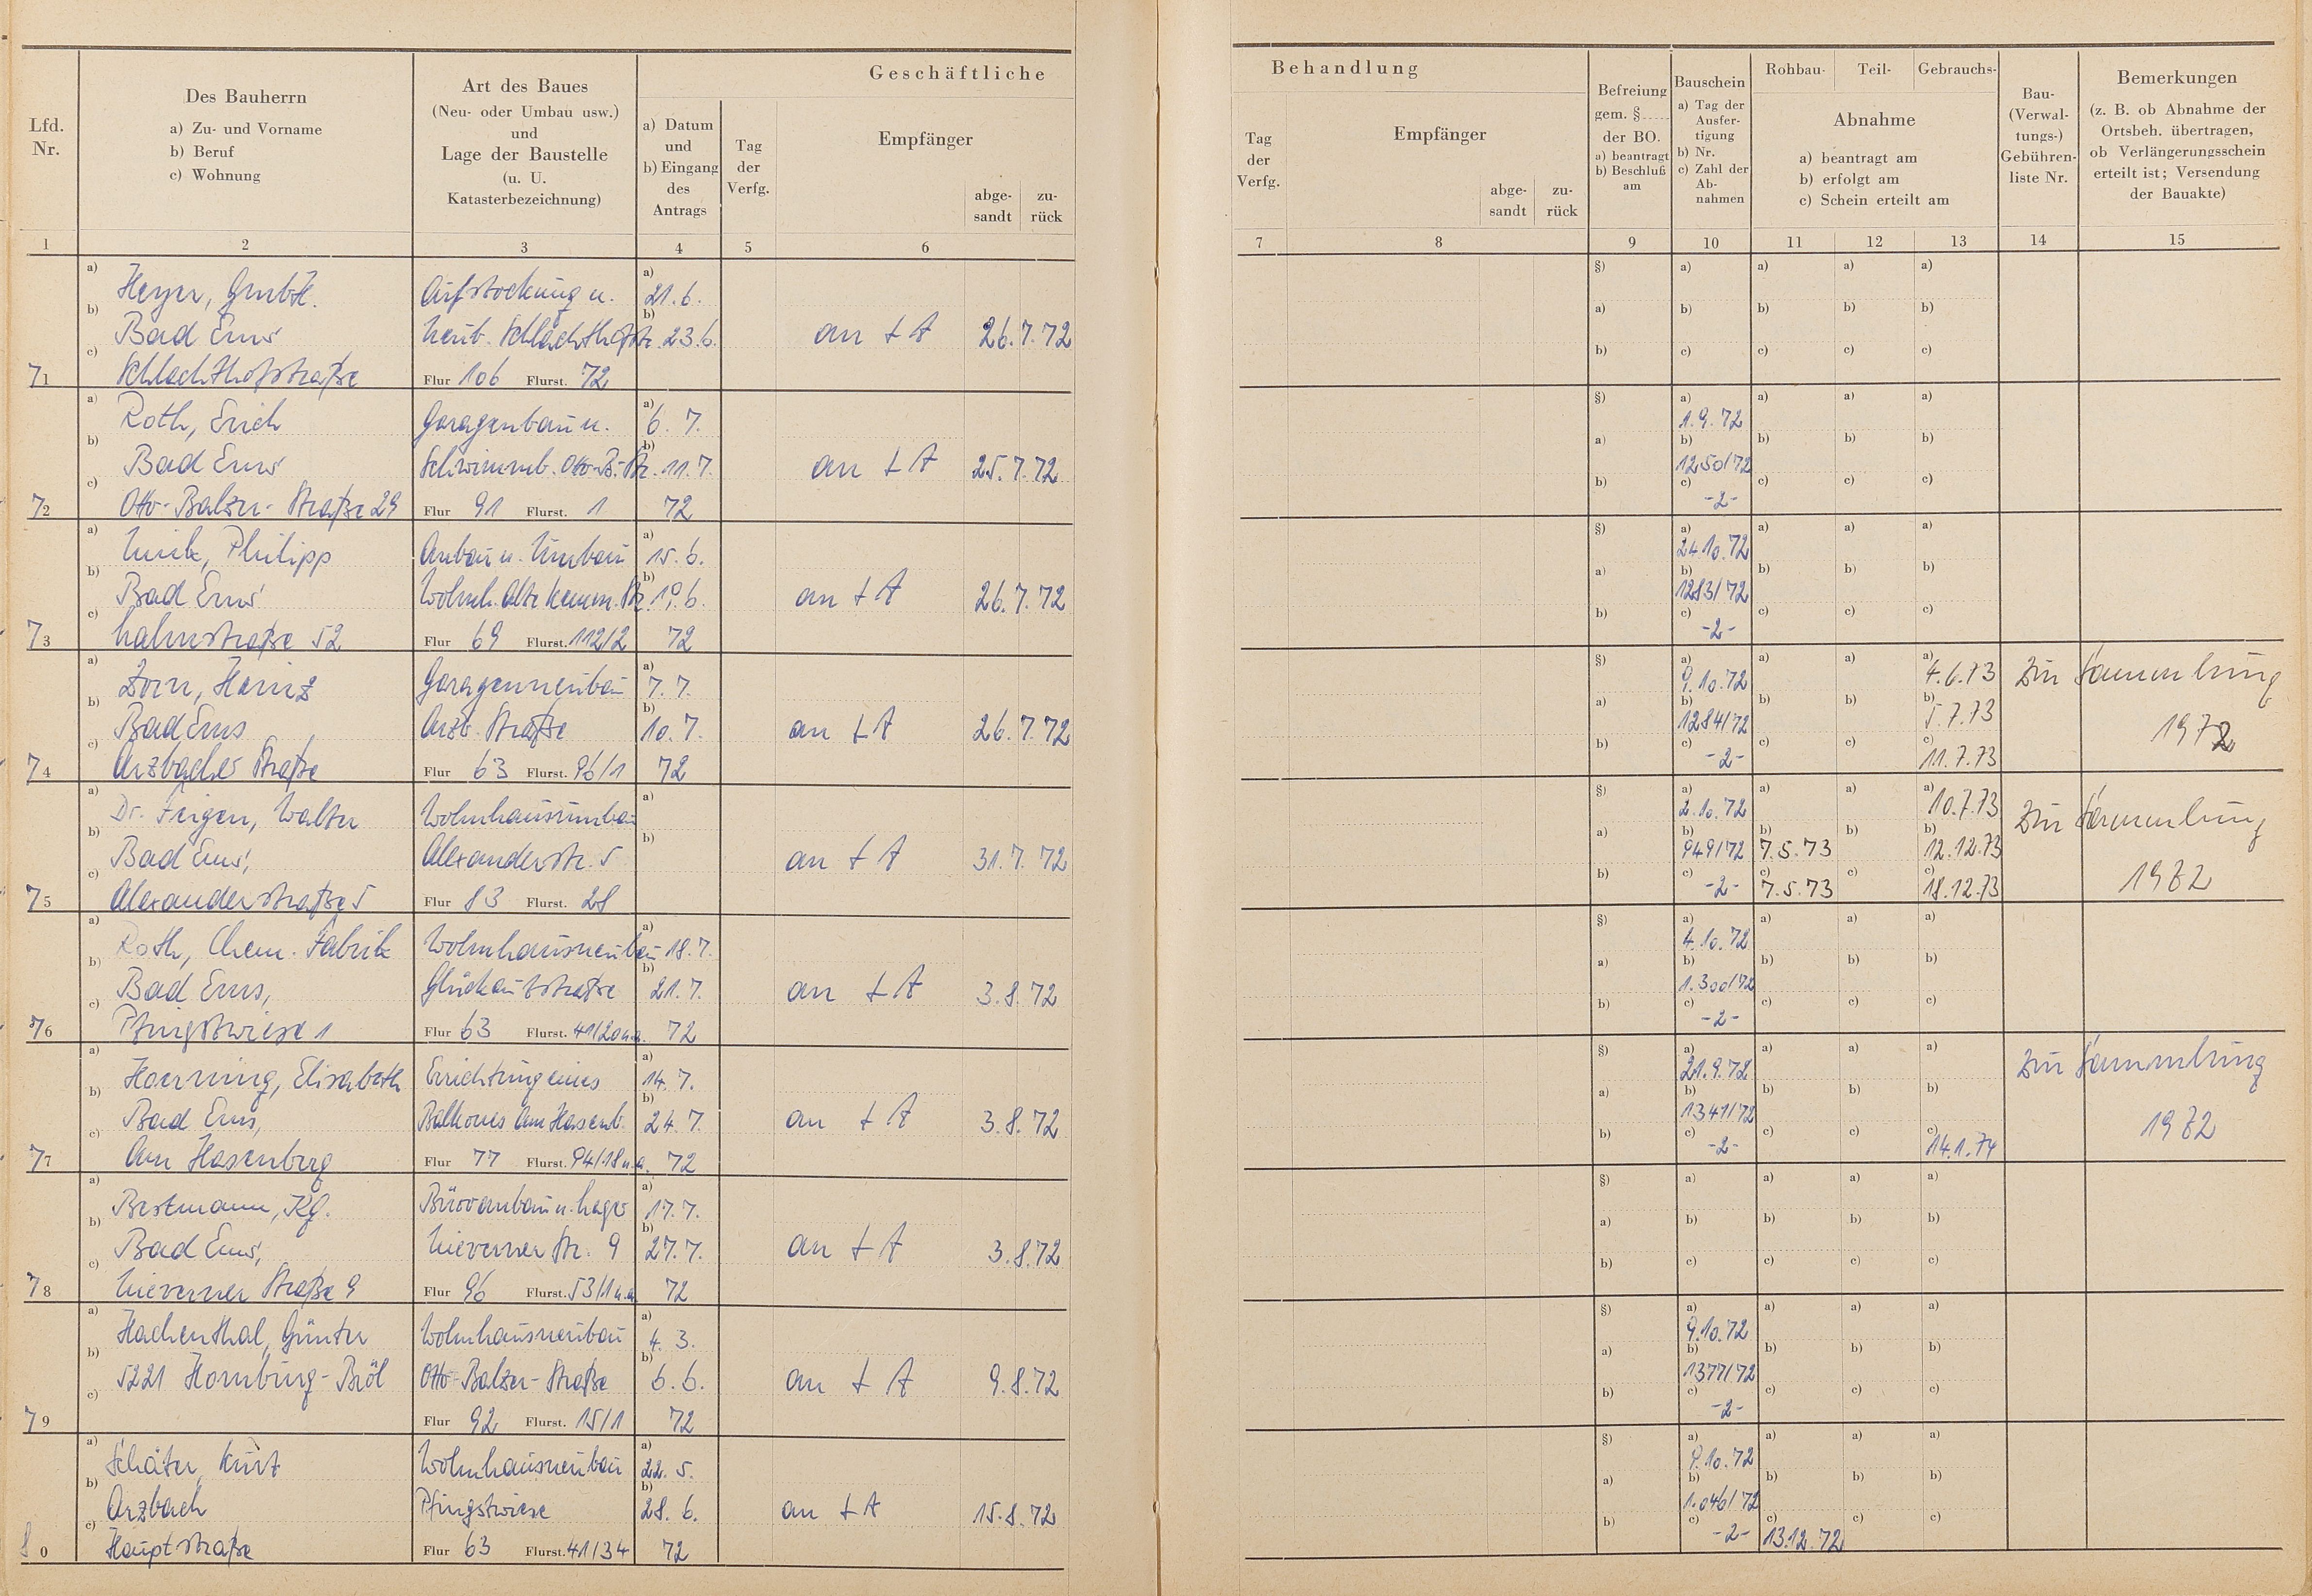 Geschäftliche
Lfd.
Nr.
Des Bauherrn
a) Zu- und Vorname
b) Beruf
c) Wohnung
Art des Baues
(Neu- oder Umbau usw.)
und
Lage der Baustelle
(u. U.
Katasterbezeichnung)
a) Datum
und
b) Eingang
des
Antrags
Tag
der
Verfg.
Empfänger
abge-
sandt
zu-
rück
1 2 3 4 5 6
a) Heyer, GmbH. Aufstockung u. a) 21.6.
b) Bad Ems Neub. Schlachthofstr. b) 23.6. an LA 26.7.72
c) Schlachthofstraße
71 Flur 106 Flurst. 72
a) Roth, Erich Garagenbau u. a) 6.7.
b) Bad Ems Schwimmb. Otto-B.-Str. b) 11.7. an LA 25.7.72
c) Otto-Balzer-Straße 29
72 Flur 91 Flurst. 1 72
a) Philipp Anbau u. Umbau a) 15.6.
b) Bad Ems Wohnh. Alte Kemm. Str. b) 19.6. an LA 26.7.72
c) Lahnstraße 52
73 Flur 69 Flurst. 112/2 72
a) Zorn, Heinz Garagenneubau a) 7.7.
b) Bad Ems Arzb. Straße b) 10.7. an LA 26.7.72
c) Arzbacher Straße
74 Flur 63 Flurst. 96/1 72
a) Dr. Feigen, Walter Wohnhausumbau a)
b) Bad Ems, Alexanderstr. 5 b) an LA 31.7.72
c) Alexanderstraße 5
75 Flur 83 Flurst. 28
a) Roth, Chem. Fabrik Wohnhausneubau a) 18.7.
b) Bad Ems, Glückaufstraße b) 21.7. an LA 3.8.72
c) Pfingstwiese 1
76 Flur 63 Flurst. 41/20 u.a. 72
a) Hoerning, Elisabeth Errichtung eines a) 14.7.
b) Bad Ems, Balkones Am Hasenb. b) 24.7. an LA 3.8.72
c) Am Hasenberg
77 Flur 77 Flurst. 94/18 u.a. 72
a) Bestmann, KG. Büroanbau u. Lager a) 17.7.
b) Bad Ems, Nieverner Str. 9 b) 27.7. an LA 3.8.72
c) Nieverner Straße 9
78 Flur 96 Flurst. 53/1 u.a. 72
a) Hachenthal, Günter Wohnhausneubau a) 4.3.
b) 5221 Homburg-Bröl Otto-Balzer-Straße b) 6.6. an LA 9.8.72
c)
79 Flur 92 Flurst. 15/1 72
a) Schäfer, Kurt Wohnhausneubau a) 22.5.
b) Arzbach Pfingstwiese b) 28.6. an LA 15.8.72
c) Hauptstraße
80 Flur 63 Flurst. 41/34 72
Behandlung
Tag
der
Verfg.
Empfänger
abge-
sandt
zu-
rück
Befreiung
gem. §
der BO.
a) beantragt
b) Beschluß
am
Bauschein
a) Tag der
Ausfer-
tigung
b) Nr.
c) Zahl der
Ab-
nahmen
Rohbau- Teil- Gebrauchs-
Abnahme
a) beantragt am
b) erfolgt am
c) Schein erteilt am
Bau-
(Verwal-
tungs-)
Gebühren-
liste Nr.
Bemerkungen
(z. B. ob Abnahme der
Ortsbeh. übertragen,
ob Verlängerungsschein
erteilt ist; Versendung
der Bauakte)
7 8 9 10 11 12 13 14 15
§) a) a) a) a)
a) b) b) b) b)
b) c) c) c) c)
§) a) 1.9.72 a) a) a)
a) b) 1250/72 b) b) b)
b) c) -2- c) c) c)
§) a) 24.10.72 a) a) a)
a) b) 1283/72 b) b) b)
b) c) -2- c) c) c)
§) a) 9.10.72 a) a) a) 4.6.73 zur Sammlung
a) b) 1284/72 b) b) b) 5.7.73 1972
b) c) -2- c) c) c) 11.7.73
§) a) 2.10.72 a) a) a) 10.7.73 zur Sammlung
a) b) 949/72 b) 7.5.73 b) b) 12.12.73
b) c) -2- c) 7.5.73 c) c) 18.12.73 1972
§) a) 4.10.72 a) a) a)
a) b) 1.300/72 b) b) b)
b) c) -2- c) c) c)
§) a) 21.9.72 a) a) a) zur Sammlung
a) b) 1341/72 b) b) b)
b) c) -2- c) c) c) 14.1.74 1972
§) a) a) a) a)
a) b) b) b) b)
b) c) c) c) c)
§) a) 9.10.72 a) a) a)
a) b) 1377/72 b) b) b)
b) c) -2- c) c) c)
§) a) 9.10.72 a) a) a)
a) b) 1.046/72 b) b) b)
b) c) -2- c) 13.12.72 c) c)